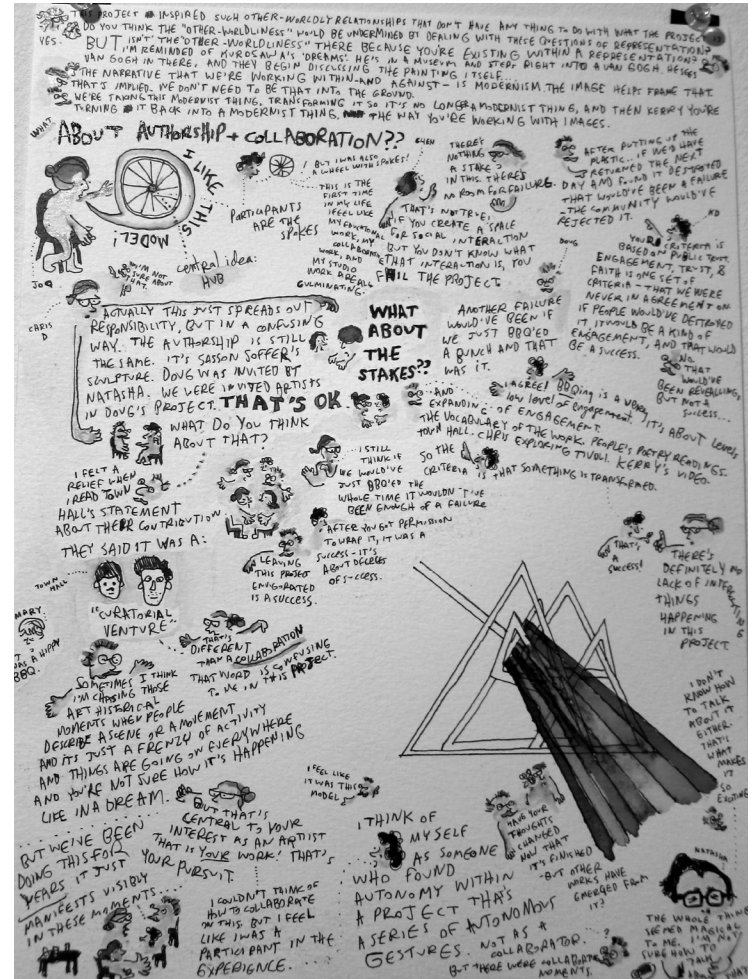 THIS PROJECT INSPIRED SUCH OTHER-WORLDLY RELATIONSHIPS THAT DON'T HAVE ANY THING TO DO WITH WHAT THE PROJECT IS
DO YOU THINK THE "OTHER-WORLDLINESS" WOULD BE UNDERMINED BY DEALING WITH THESE QUESTIONS OF REPRESENTATION?
YES.
BUT ISN'T THE "OTHER-WORLDLINESS" THERE BECAUSE YOU'RE EXISTING WITHIN A REPRESENTATION?
I'M REMINDED OF KUROSAWA'S 'DREAMS'. HE'S IN A MUSEUM AND STEPS RIGHT INTO A VAN GOGH. HE SEES
VAN GOGH IN THERE, AND THEY BEGIN DISCUSSING THE PAINTING ITSELF...
THE NARRATIVE THAT WE'RE WORKING WITHIN-AND AGAINST - IS MODERNISM THE IMAGE HELPS FRAME THAT
THAT'S IMPLIED. WE DON'T NEED TO BEAT THAT INTO THE GROUND.
WE'RE TAKING THIS MODERNIST THING, TRANSFORMING IT SO IT'S NO LONGER A MODERNIST THING, AND THEN KERRY YOU'RE
TURNING IT BACK INTO A MODERNIST THING, THE WAY YOU'RE WORKING WITH IMAGES.
WHAT
ABOUT AUTHORSHIP + COLLABORATION??
I LIKE THIS
MODEL!
JO
PARTICIPANTS
ARE THE
SPOKES
central idea:
HUB
I'M NOT
SO SURE ABOUT
THAT.
! BUT I WAS ALSO
A WHEEL WITH SPOKES!
THIS IS THE
FIRST TIME
IN MY LIFE
I FEEL LIKE
MY EDUCATIONAL
WORK, MY
COLLABORATIVE
WORK, AND
MY STUDIO
WORK ARE ALL
CULMINATING.
THERE'S
NOTHING
A STAKE?
IN THIS. THERE'S
NO ROOM FOR FAILURE.
THAT'S NOT TRUE,
IF YOU CREATE A SPACE
FOR SOCIAL INTERACTION
BUT YOU DON'T KNOW WHAT
THAT INTERACTION IS, YOU
FAIL THE PROJECT
AFTER PUTTING UP THE
PLASTIC... IF WE'D HAVE
RETURNED THE NEXT
DAY AND FOUND IT DESTROYED
THAT WOULD'VE BEEN A FAILURE
- THE COMMUNITY WOULD'VE
REJECTED IT.
KD
DOUG
YOUR CRITERIA IS
BASED ON PUBLIC TRUST.
ENGAGEMENT, TRUST, &
FAITH IS ONE SET OF
CRITERIA - THAT WE WERE
NEVER IN AGREEMENT ON
IF PEOPLE WOULD'VE DESTROYED
IT, IT WOULD BE A KIND OF
ENGAGEMENT, AND THAT WOULD
BE A SUCCESS.
NO.
THAT
WOULD'VE
BEEN REVEALING,
BUT NOT A
SUCCESS...
CHRIS
D
ACTUALLY THIS JUST SPREADS OUT
RESPONSIBILITY, BUT IN A CONFUSING
WAY. THE AUTHORSHIP IS STILL
THE SAME. IT'S SASSON SOFFER'S
SCULPTURE. DOUG WAS INVITED BY
NATASHA. WE WERE INVITED ARTISTS
IN DOUG'S PROJECT. THAT'S OK
WHAT
ABOUT
THE
STAKES??
ANOTHER FAILURE
WOULD'VE BEEN IF
WE JUST BBQ'ED
A BUNCH AND THAT
WAS IT.
I AGREE! BBQing IS A VERY
low level of engagement. IT'S ABOUT LEVELS
OF ENGAGEMENT.
AND
EXPANDING
THE VOCABULARY OF THE WORK. PEOPLE'S POETRY READINGS.
TOWN HALL. CHRIS EXPLORING TIVOLI. KERRY'S VIDEO.
SO THE
CRITERIA IS THAT SOMETHING IS TRANSFORMED.
WHAT DO YOU THINK
ABOUT THAT?
I FELT A
RELIEF WHEN
I READ TOWN
HALL'S STATEMENT
ABOUT THEIR CONTRIBUTION
THEY SAID IT WAS A:
TOWN
HALL
"CURATORIAL
VENTURE"
... I STILL
THINK IF
WE WOULD'VE
JUST BBQ'ED THE
WHOLE TIME IT WOULDN'T'VE
BEEN ENOUGH OF A FAILURE
AFTER YOU GOT PERMISSION
TO WRAP IT, IT WAS A
SUCCESS - IT'S
ABOUT DEGREES
OF SUCCESS.
LEAVING
THIS PROJECT
INVIGORATED
IS A SUCCESS.
THAT'S
A
SUCCESS!
THERE'S
DEFINITELY NO
LACK OF INTERESTING
THINGS
HAPPENING
IN THIS
PROJECT
MARY
WAS A HIPPY
BBQ.
THAT'S
DIFFERENT
THAN A COLLABORATION
THAT WORD IS CONFUSING
TO ME IN THIS PROJECT.
SOMETIMES I THINK
I'M CHASING THOSE
ART HISTORICAL
MOMENTS WHEN PEOPLE
DESCRIBE A SCENE OR A MOVEMENT
AND IT'S JUST A FRENZY OF ACTIVITY
AND THINGS ARE GOING ON EVERYWHERE
AND YOU'RE NOT SURE HOW IT'S HAPPENING
LIKE IN A DREAM.
BUT THAT'S
CENTRAL TO YOUR
INTEREST AS AN ARTIST
THAT IS YOUR WORK! THAT'S
YOUR PURSUIT.
BUT WE'VE BEEN
DOING THIS FOR
YEARS IT JUST
MANIFESTS VISIBLY
IN THESE MOMENTS...
I FEEL LIKE
IT WAS THIS
MODEL
I COULDN'T THINK OF
HOW TO COLLABORATE
ON THIS BUT I FEEL
LIKE I WAS A
PARTICIPANT IN THE
EXPERIENCE.
I THINK OF
MYSELF
AS SOMEONE
WHO FOUND
AUTONOMY WITHIN
A PROJECT THAT'S
A SERIES OF AUTONOMOUS
GESTURES. NOT AS A
COLLABORATOR.
BUT THERE WERE COLLABORATIVE
MOMENTS
HAVE YOUR
THOUGHTS
CHANGED
NOW THAT
IT'S FINISHED
-BUT OTHER
WORKS HAVE
EMERGED FROM
IT?
I DON'T
KNOW HOW
TO TALK
ABOUT IT
EITHER.
THAT'S
WHAT
MAKES
IT
SO
EXCITING
NATASHA
THE WHOLE THING
SEEMED MAGICAL
TO ME. I'M NOT
SURE HOW TO
TALK